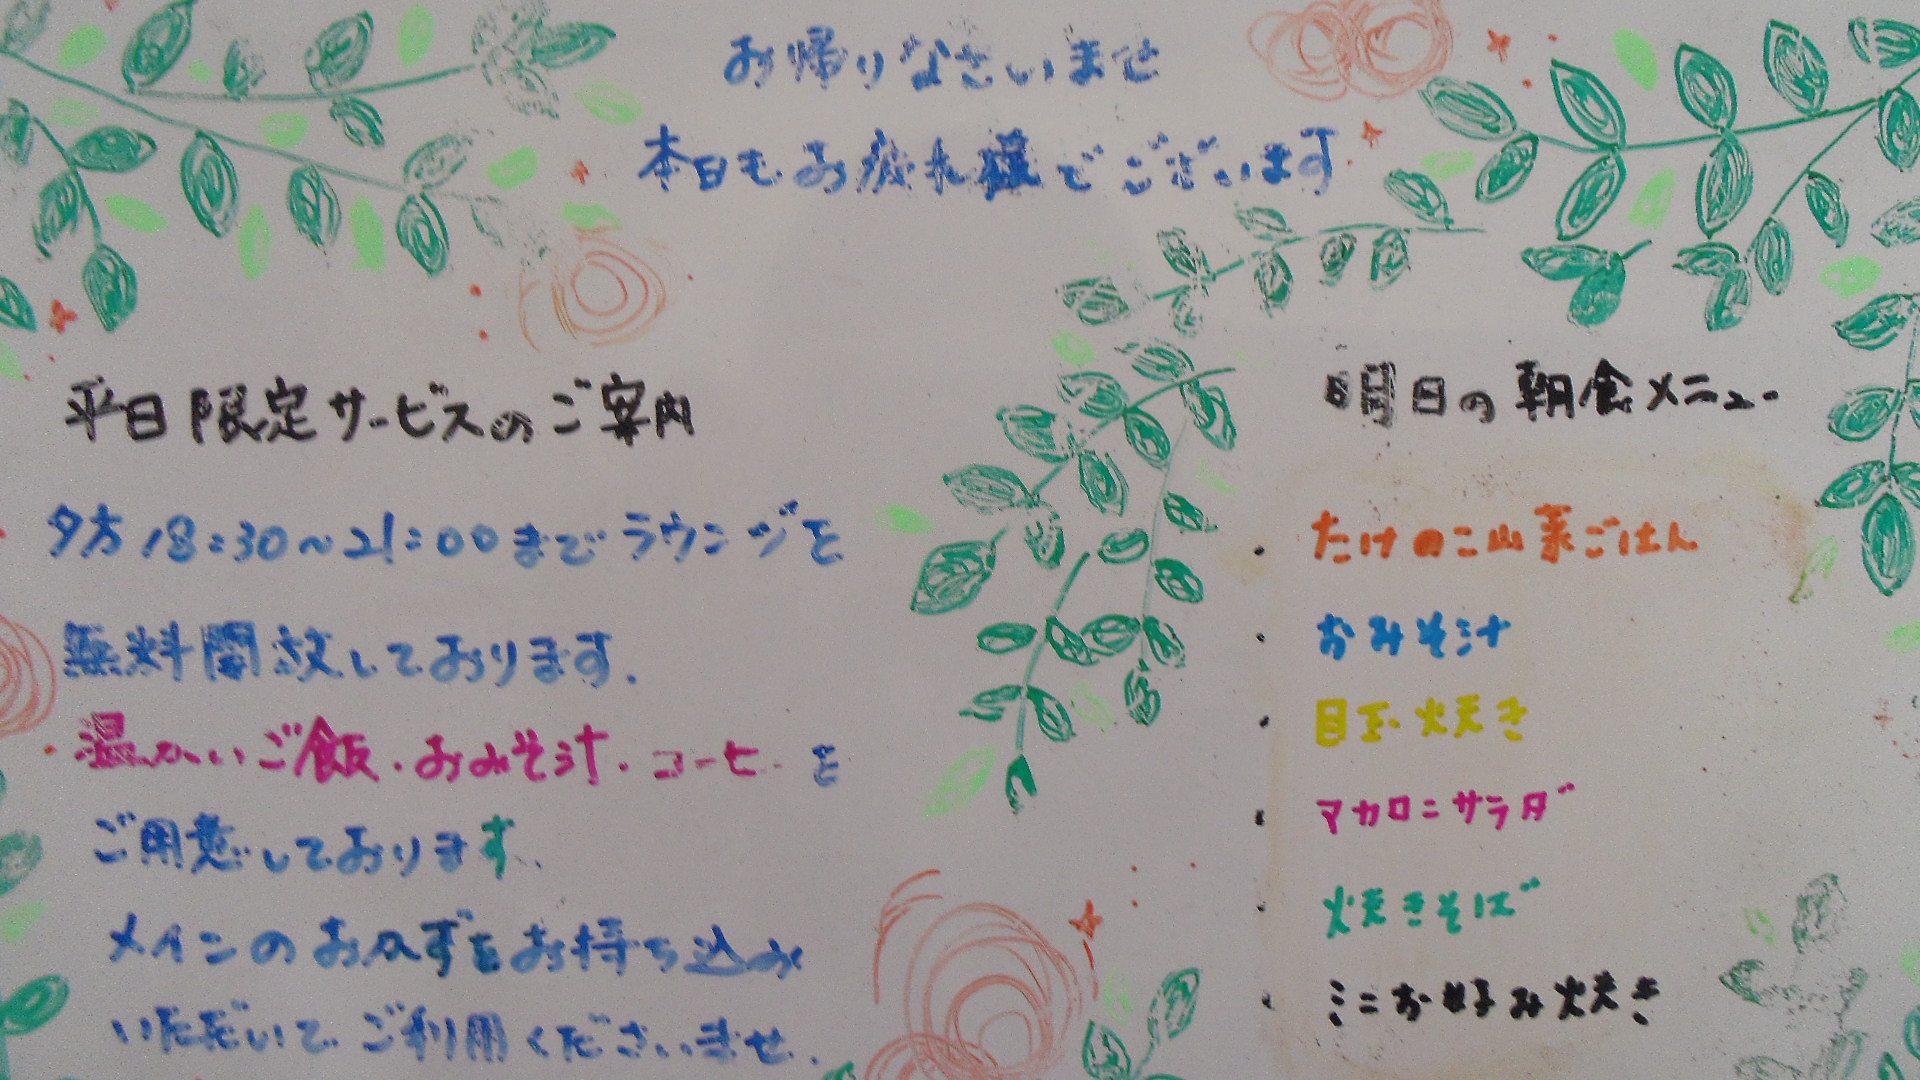 お帰りなさいませ
本日もお疲れ様でございます
平日限定サービスのご案内
夕方18:30～21:00までラウンジを
無料開放しております.
温かいご飯・おみそ汁・コーヒーを
ご用意しております.
メインのおかずをお持ち込み
いただいてご利用くださいませ.
明日の朝食メニュー
・たけのこ山菜ごはん
・おみそ汁
・目玉焼き
・マカロニサラダ
・焼きそば
・ミニお好み焼き